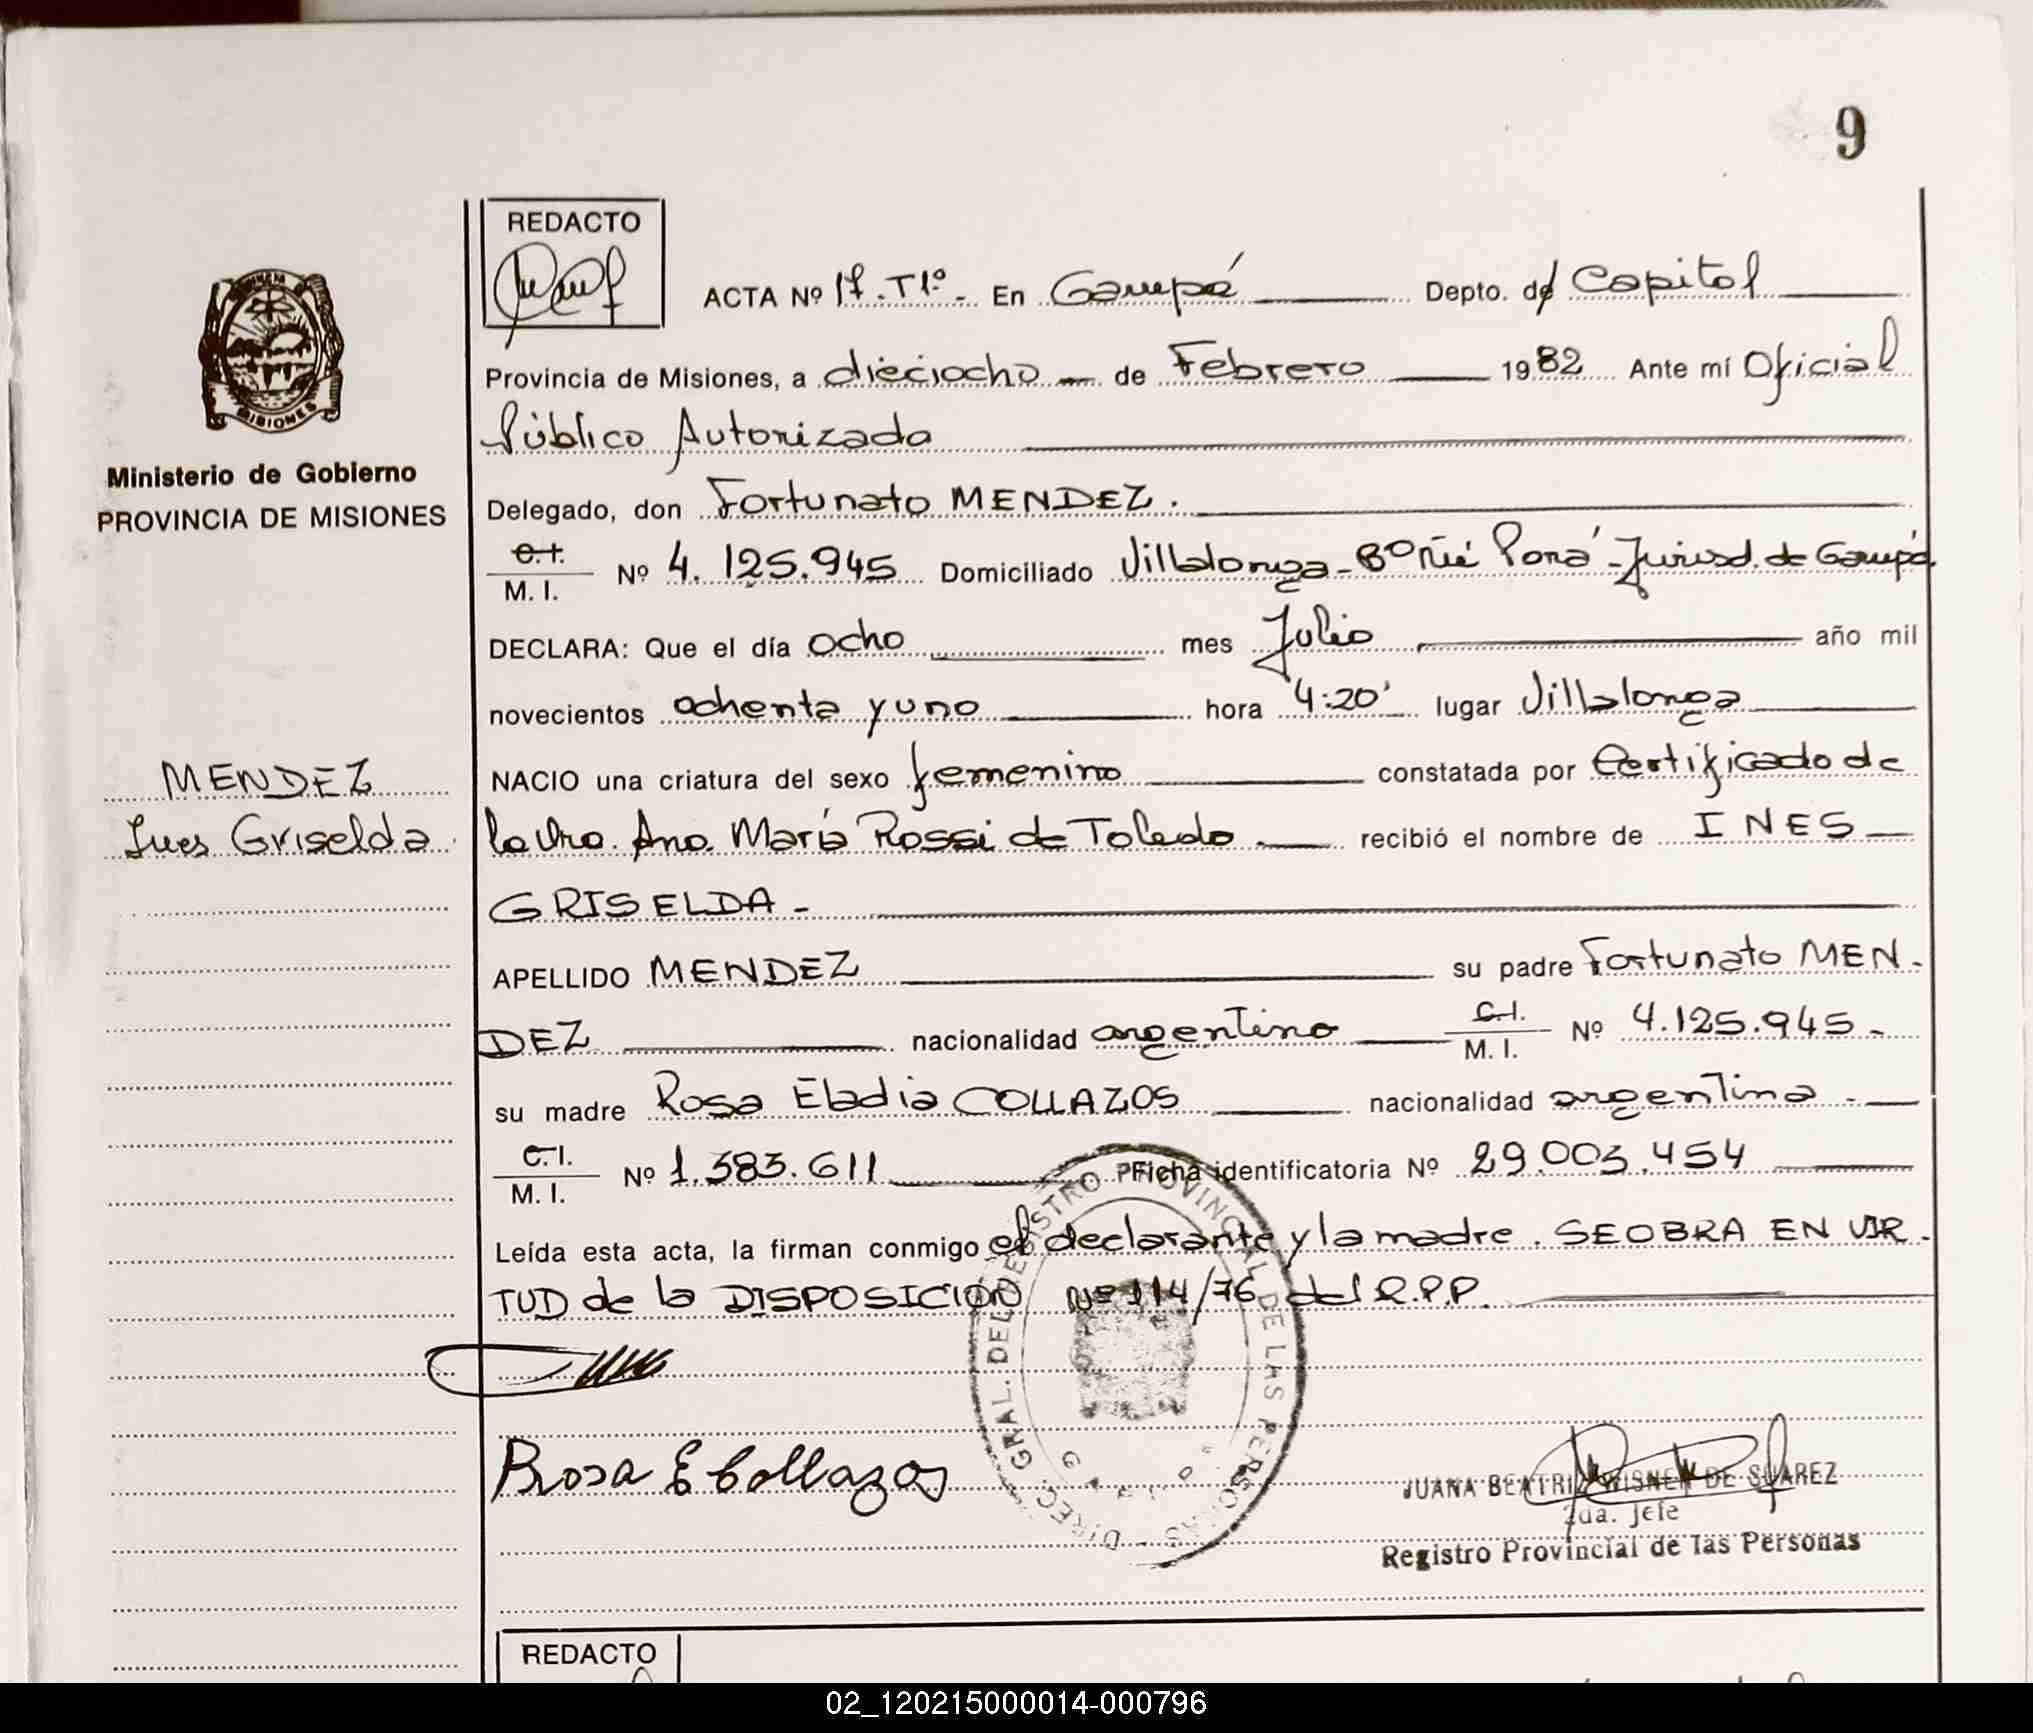 9
REDACTO
ACTA Nº 17.T1º. En Garupá Depto. de Capital
Provincia de Misiones, a dieciocho de Febrero 1982 Ante mí Oficial
Público Autorizada
Ministerio de Gobierno
PROVINCIA DE MISIONES
MISIONES
Delegado, don Fortunato MENDEZ.
C.I.
M. I. Nº 4.125.945 Domiciliado Villalonga - Bº Ñú Porá - Jurisd. de Garupá
DECLARA: Que el día ocho mes Julio año mil
novecientos ochenta y uno hora 4:20' lugar Villalonga
MENDEZ
Ines Griselda
NACIO una criatura del sexo femenino constatada por Certificado de
la Dra. Ana María Rossi de Toledo. recibió el nombre de INES
GRISELDA -
APELLIDO MENDEZ su padre Fortunato MEN-
DEZ nacionalidad argentino C.I. M. I. Nº 4.125.945.-
su madre Rosa Eladia COLLAZOS nacionalidad argentina.-
C.I.
M. I. Nº 1.383.611 Ficha identificatoria Nº 29.003.454
Leída esta acta, la firman conmigo el declarante y la madre. SE OBRA EN VIR-
TUD de la DISPOSICION Nº 114/76 del R.P.P.
DIREC. GRAL. DEL REGISTRO PROVINCIAL DE LAS PERSONAS
Rosa E Collazos
JUANA BEATRIZ WISNER DE SUAREZ
2da. Jefe
Registro Provincial de las Personas
REDACTO
02_120215000014-000796